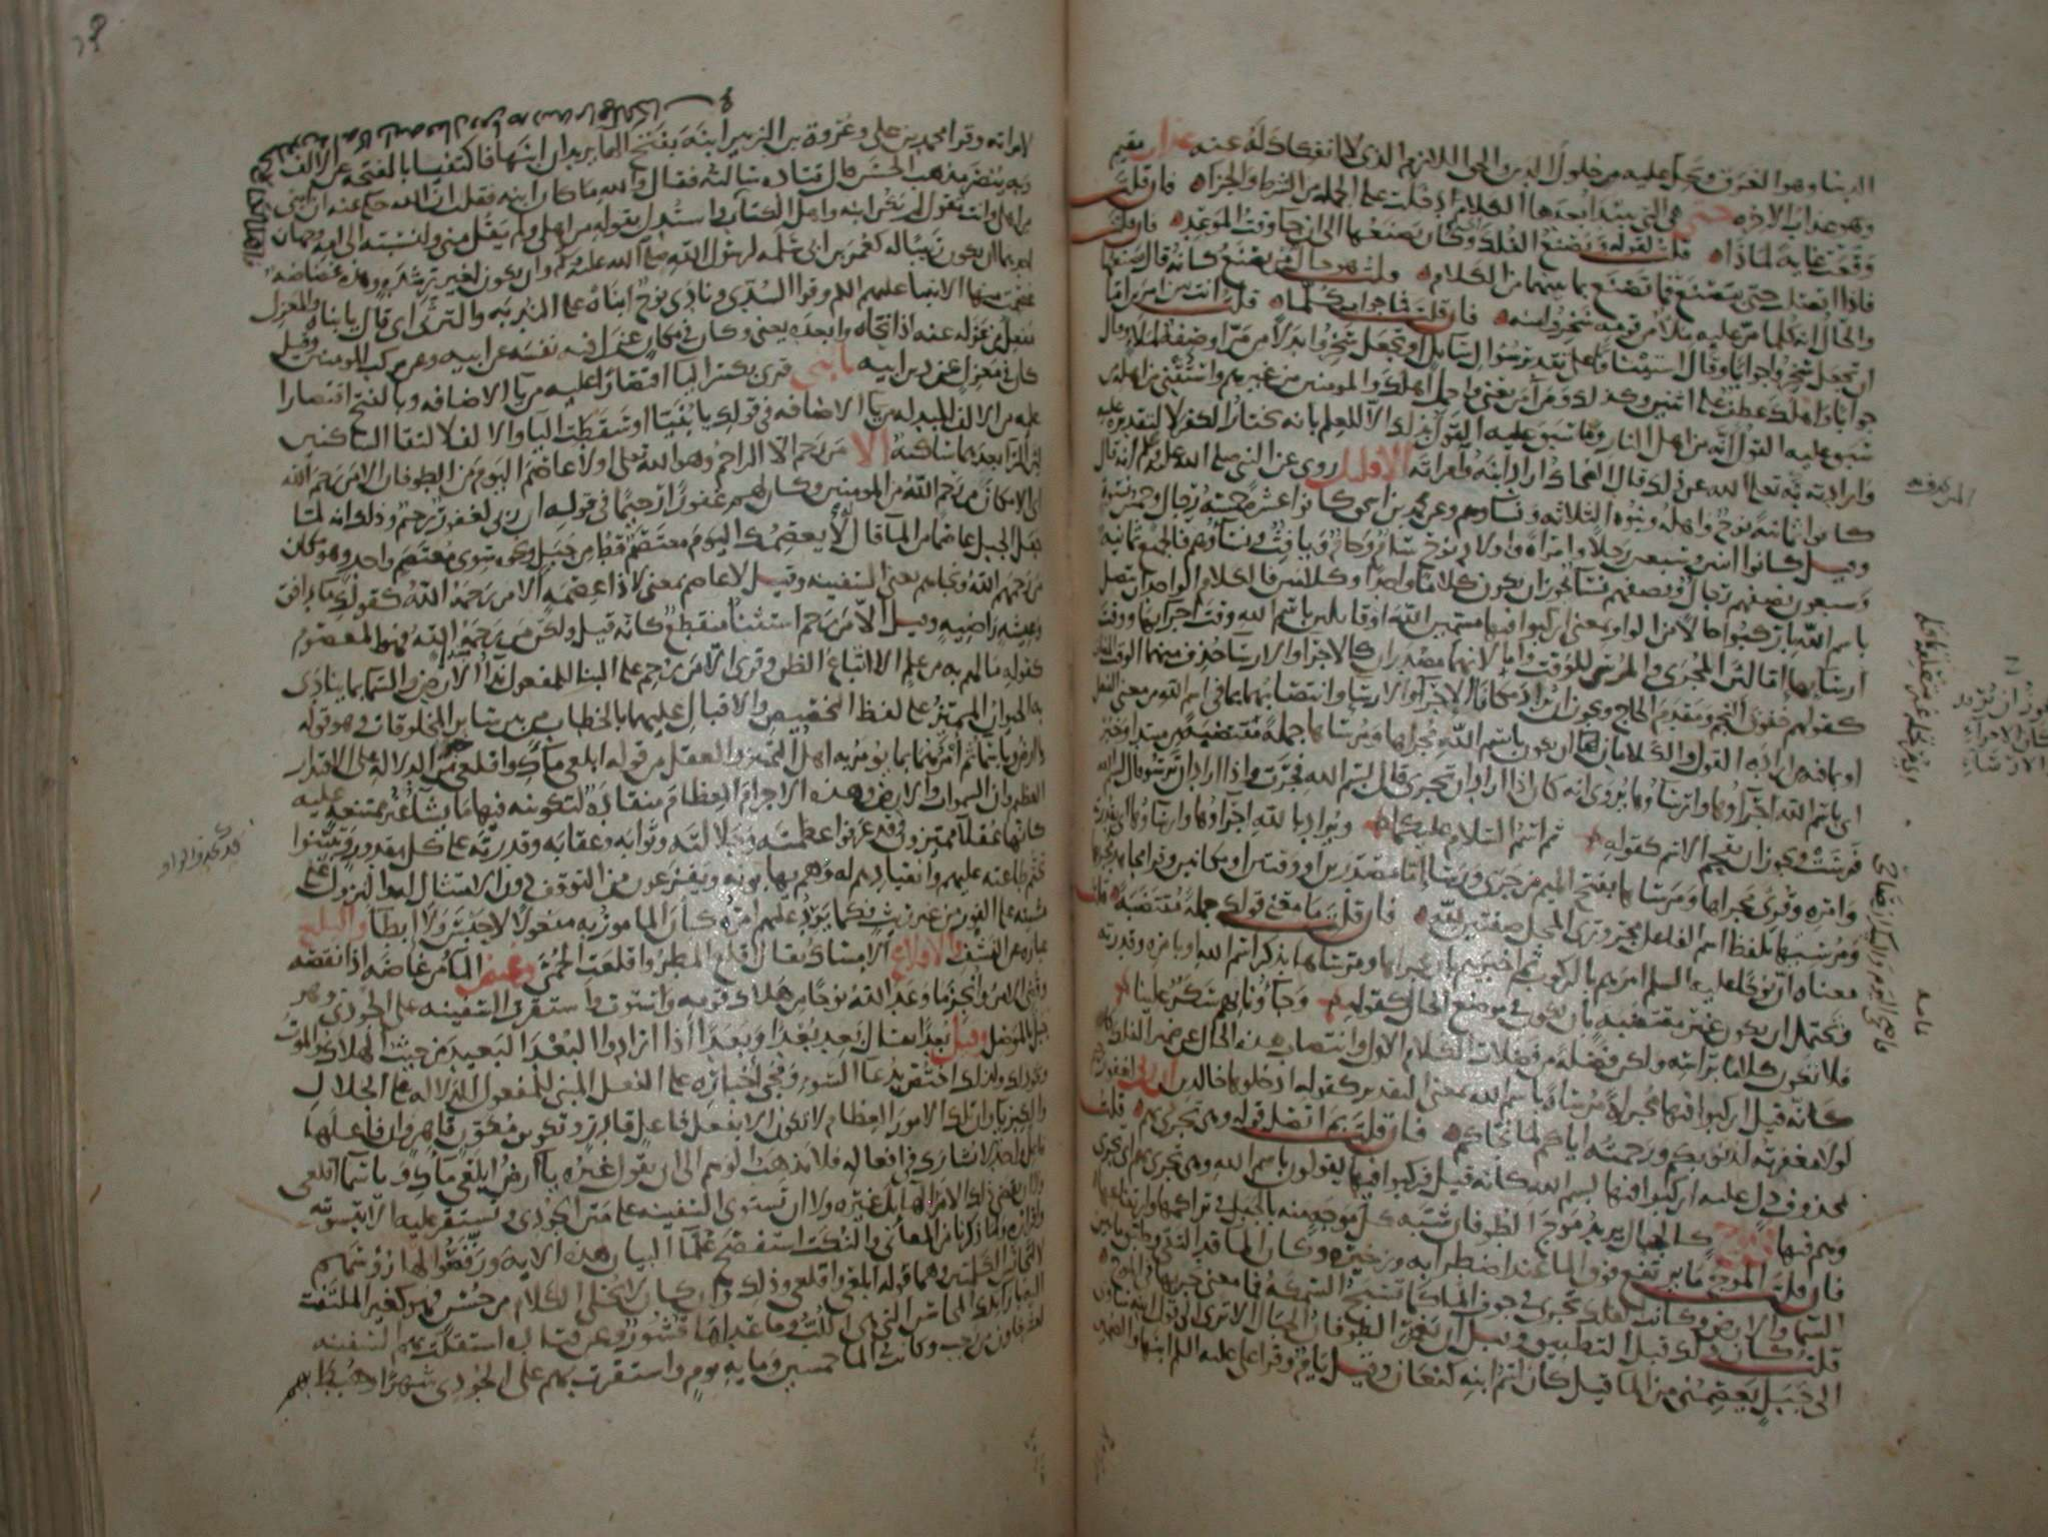 الدنيا وهو الغرق ويحل عليه من حلول الدين والحق اللازم الذي لا انفكاك له عنه عذاب مقيم
وهو عذاب الآخرة حتى هي التي يبتدا بعدها الكلام ادخلت على الجملة من الشرط والجزاء فان قلت
وقعت غاية لماذا قلت لقوله ويصنع الفلك وكان يصنعها الى ان جاء وقت الموعد فان قلت
فاذا اتصلت حتى بيصنع فما تصنع بما بينهما من الكلام قلت هو حال من يصنع كانه قال يصنعها
والحال انه كلما مر عليه ملأ من قومه سخروا منه فان قلت فما جواب كلما قلت انت بين امرين اما
ان تجعل سخروا جوابا وقال استئنافا على تقدير سؤال سائل او تجعل سخروا بدلا من مر او صفة لملأ وقال
جوابا واهلك عطف على اثنين وكذلك ومن آمن يعني واحمل اهلك والمومنين من غيرهم واستثنى من اهله من
سبق عليه القول انه من اهل النار وما سبق عليه القول بذلك الا للعلم بانه يختار الكفر لا لتقديره عليه
وارادته به تعالى الله عن ذلك قال الضحاك اراد ابنه وامراته الا قليل روي عن النبي صلى الله عليه وسلم انه قال
كانوا ثمانية نوح واهله وبنوه الثلاثة ونساوهم وعن محمد بن اسحق كانوا عشرة خمسة رجال وخمس نسوة
وقيل كانوا اثنين وسبعين رجلا وامراة واولاد نوح سام وحام ويافث ونساؤهم فالجميع ثمانية
وسبعون نصفهم رجال ونصفهم نساء يجوز ان يكون كلاما واحدا وكلامين فالكلام الواحد ان يتصل
باسم الله باركبوا حالا من الواو بمعنى اركبوا فيها مسمين الله او قائلين باسم الله وقت اجرايها ووقت
ارسائها اما لان المجرى والمرسى للوقت واما لانهما مصدران كالاجراء والارساء حذف منهما الوقت المضاف
كقولهم خفوق النجم ومقدم الحاج ويجوز ان يراد مكانا الاجراء والارساء وانتصابهما بما في اسم الله من معنى الفعل
او بما فيه من ارادة القول والكلامان ان يكون باسم الله مجراها ومرساها جملة مقتضبة من مبتدا وخبر
اي باسم الله اجراؤها وارساؤها يروى انه كان اذا اراد ان تجري قال بسم الله فجرت واذا اراد ان ترسو قال بسم الله
فرست ويجوز ان يقحم الاسم كقوله ثم اسم السلام عليكما ويراد بالله اجراؤها وارساؤها اي بقدرته
وامره وقرئ مجراها ومرساها بفتح الميم من جرى ورسا اما مصدرين او وقتين او مكانين وقرا مجاهد مجريها
ومرسيها بلفظ اسم الفاعل مجرورى المحل صفتين لله فان قلت ما معنى قولك جملة مقتضبة قلت
معناه ان نوحا عليه السلم امرهم بالركوب ثم اخبرهم بان مجراها ومرساها بذكر اسم الله او بامره وقدرته
ويحتمل ان يكون غير مقتضبة بان يكون في موضع الحال كقوله وجاؤنا بهم سكر علينا
فلا تكون كلاما براسه ولكن فضلة من فضلات الكلام الاول وانتصاب هذه الحال عن ضمير الفلك
كانه قيل اركبوا فيها مجراة ومرساة باسم الله بمعنى التقدير كقوله ادخلوها خالدين ان ربي لغفور
لولا مغفرته لذنوبكم ورحمته اياكم لما نجاكم فان قلت بم اتصل قوله وهي تجري بهم قلت
بمحذوف دل عليه اركبوا فيها بسم الله كانه قيل فركبوا فيها يقولون باسم الله وهي تجري بهم اي تجري
وهم فيها في موج كالجبال يريد موج الطوفان شبه كل موجة منه بالجبل في تراكمها وارتفاعها
فان قلت الموج ما يرتفع فوق الماء عند اضطرابه وزخيره وكان الماء قد التقى وطبق ما بين
السماء والارض وكانت الفلك تجري في جوف الماء كما تسبح السمكة فما معنى جريها في الموج
قلت كان ذلك قبل التطبيق وقبل ان يغمر الطوفان الجبال الا ترى الى قول ابنه ساوي
الى جبل يعصمني من الماء قيل كان اسم ابنه كنعان وقيل يام وقرا علي عليه السلم ابنها والضمير
لامراته وقرا محمد بن علي وعروة بن الزبير ابنه بفتح الها يريدان ابنها فاكتفيا بالفتحة عن الالف
وبه ينصر مذهب الحسن قال قتادة سالته فقال والله ما كان ابنه فقلت ان الله حكى عنه ان ابني
من اهلي وانت تقول لم يكن ابنه واهل الكتاب فاستدل بقوله من اهلي ولم يقل مني ولنسبته الى امه وجهان
احدهما ان يكون ربيبا له كعمر بن ابي سلمة لرسول الله صلى الله عليه وسلم وان يكون لغير رشدة وهذه غضاضة
عصمت منها الانبيا عليهم السلم وقرا السدي ونادى نوح ابناه على الندبة والترثي اي قال يا ابناه والمعزل
مفعل من عزله عنه اذا نحاه وابعده يعني وكان في مكان عزل فيه نفسه عن ابيه وعن مركب المومنين وقيل
كان في معزل عن دين ابيه يا بني قرئ بكسر اليا اقتصارا عليه من يا الاضافة وبالفتح اقتصارا
عليه من الالف المبدلة من يا الاضافة في قولك يا بنيا او سقطت اليا والالف لالتقا الساكنين
لان الرا بعدهما ساكنة الا من رحم الا الراحم وهو الله تعالى او لا عاصم اليوم من الطوفان الا من رحم الله
اي الا مكان من رحم الله من المومنين وكان لهم غفورا رحيما في قوله ان ربي لغفور رحيم وذلك انه لما
جعل الجبل عاصما من الما قال لا يعصمك اليوم معتصم قط من جبل ونحوه سوى معتصم واحد وهو مكان
من رحمهم الله ونجاهم يعني السفينة وقيل لا عاصم بمعنى لا ذا عصمة الا من رحمه الله كقوله ماء دافق
وعيشة راضية وقيل الا من رحم استثناء منقطع كانه قيل ولكن من رحمه الله فهو المعصوم
كقوله ما لهم به من علم الا اتباع الظن وقرئ الا من رحم على البنا للمفعول نداء الارض والسما بما ينادى
به الحيوان المميز على لفظ التخصيص والاقبال عليهما بالخطاب من بين ساير المخلوقات وهو قوله
يا ارض ويا سماء ثم امرهما بما يومر به اهل التمييز والعقل من قوله ابلعي ماءك واقلعي من الدلالة على الاقتدار
العظيم وان السموات والارض وهذه الاجرام العظام منقادة لتكوينه فيها ما يشاء غير ممتنعة عليه
كانها عقلاء مميزون قد عرفوا عظمته وجلالته وثوابه وعقابه وقدرته على كل مقدور وتبينوا
تحتم طاعته عليهم وانقيادهم له وهم يهابونه ويفزعون من التوقف دون الامتثال له والنزول على
مشيته على الفور من غير ريث فكما يرد عليهم امره كان المامور به مفعولا لا حبس ولا ابطاء والبلع
عبارة عن النشف والاقلاع الامساك يقال اقلع المطر واقلعت الحمى وغيض الماء من غاضه اذا نقصه
وقضي الامر وانجز ما وعد الله نوحا من هلاك قومه واستوت واستقرت السفينة على الجودي وهو
جبل بالموصل وقيل بعدا يقال بعد بعدا وبعدا اذا ارادوا البعد البعيد من حيث الهلاك والموت
ونحو ذلك ولذلك اختص بدعاء السوء ومجي اخباره على الفعل المبني للمفعول للدلالة على الجلال
والكبرياء وان تلك الامور العظام لا تكون الا بفعل فاعل قادر وتكوين مكون قاهر وان فاعلها
فاعل واحد لا يشارك في افعاله فلا يذهب الوهم الى ان يقول غيره يا ارض ابلعي ماءك ويا سماء اقلعي
ولا ان يقضي ذلك الامر الهايل غيره ولا ان تستوي السفينة على متن الجودي وتستقر عليه الا بتسويته
واقراره ولما ذكرنا من المعاني والنكت استفصح علما البيان هذه الاية ورقصوا لها رؤسهم
لا لتجانس الكلمتين وهما قوله ابلعي واقلعي وذلك وان كان لا يخلي الكلام من حسن فهو كغير الملتفت
اليه بازاء تلك المحاسن التي هي اللب وما عداها قشور وعن قتادة استقلت بهم السفينة
لعشر خلون من رجب وكانت في الماء خمسين وماية يوم واستقرت بهم على الجودي شهرا وهبط بهم